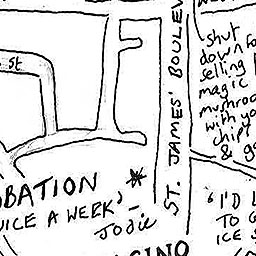 St
ST. JAMES' BOULEV
Shut
down fo
selling
magic
mushroo
with yo
chips
& g
OBATION
VICE A WEEK' -
Jodie
'I'D L
TO G
ICE S
SINO